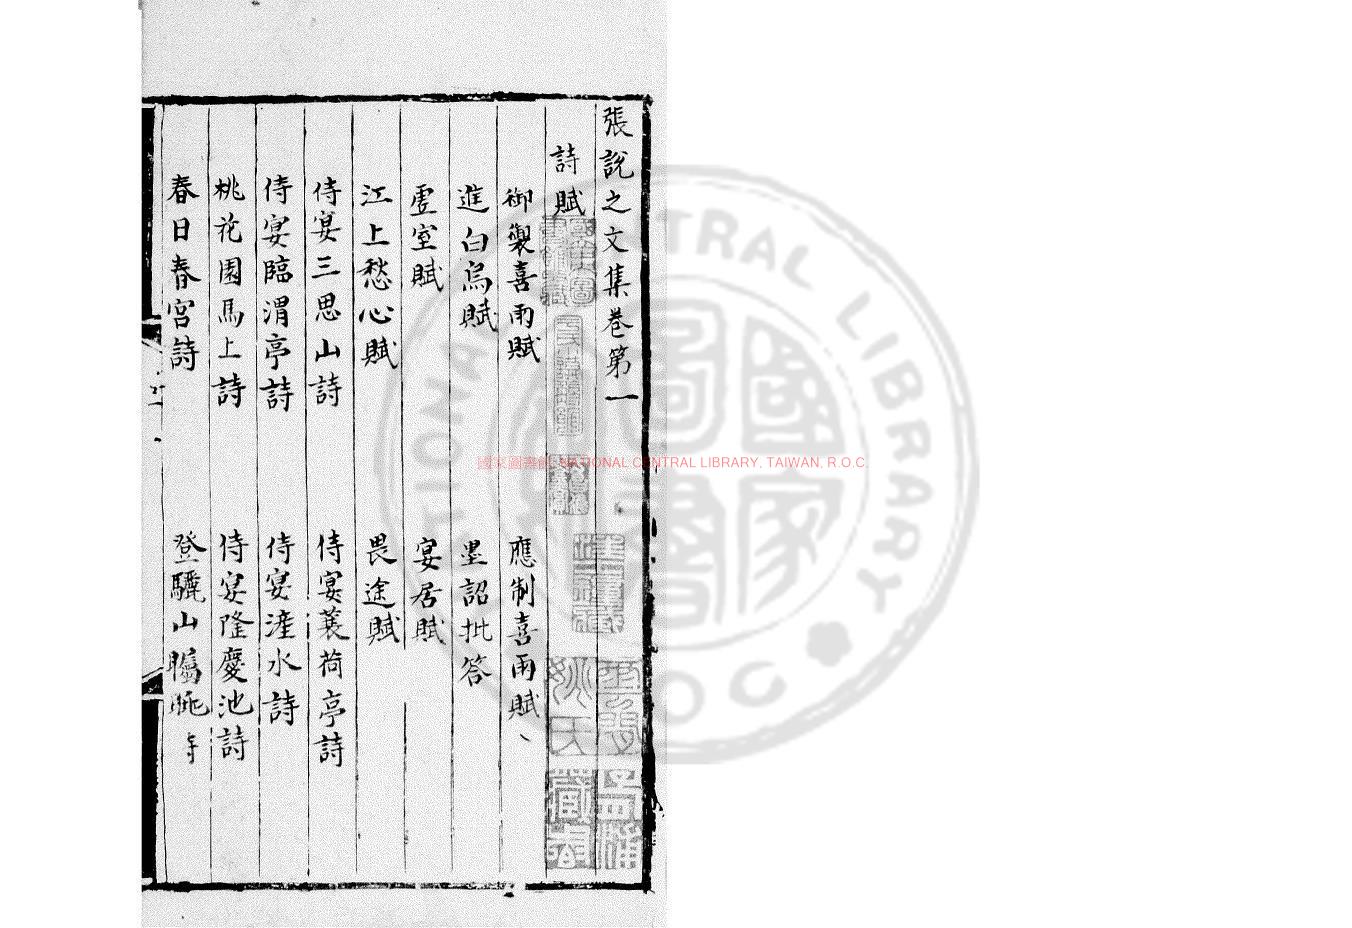 張說之文集卷第一
詩賦
御製喜雨賦 應制喜雨賦
進白烏賦 墨詔批答
虛室賦 宴居賦
江上愁心賦 畏途賦
侍宴三思山詩 侍宴蓑荷亭詩
侍宴臨渭亭詩 侍宴滻水詩
桃花園馬上詩 侍宴隆慶池詩
春日春宮詩 登驪山矚眺詩
國家圖書館 NATIONAL CENTRAL LIBRARY, TAIWAN, R.O.C.